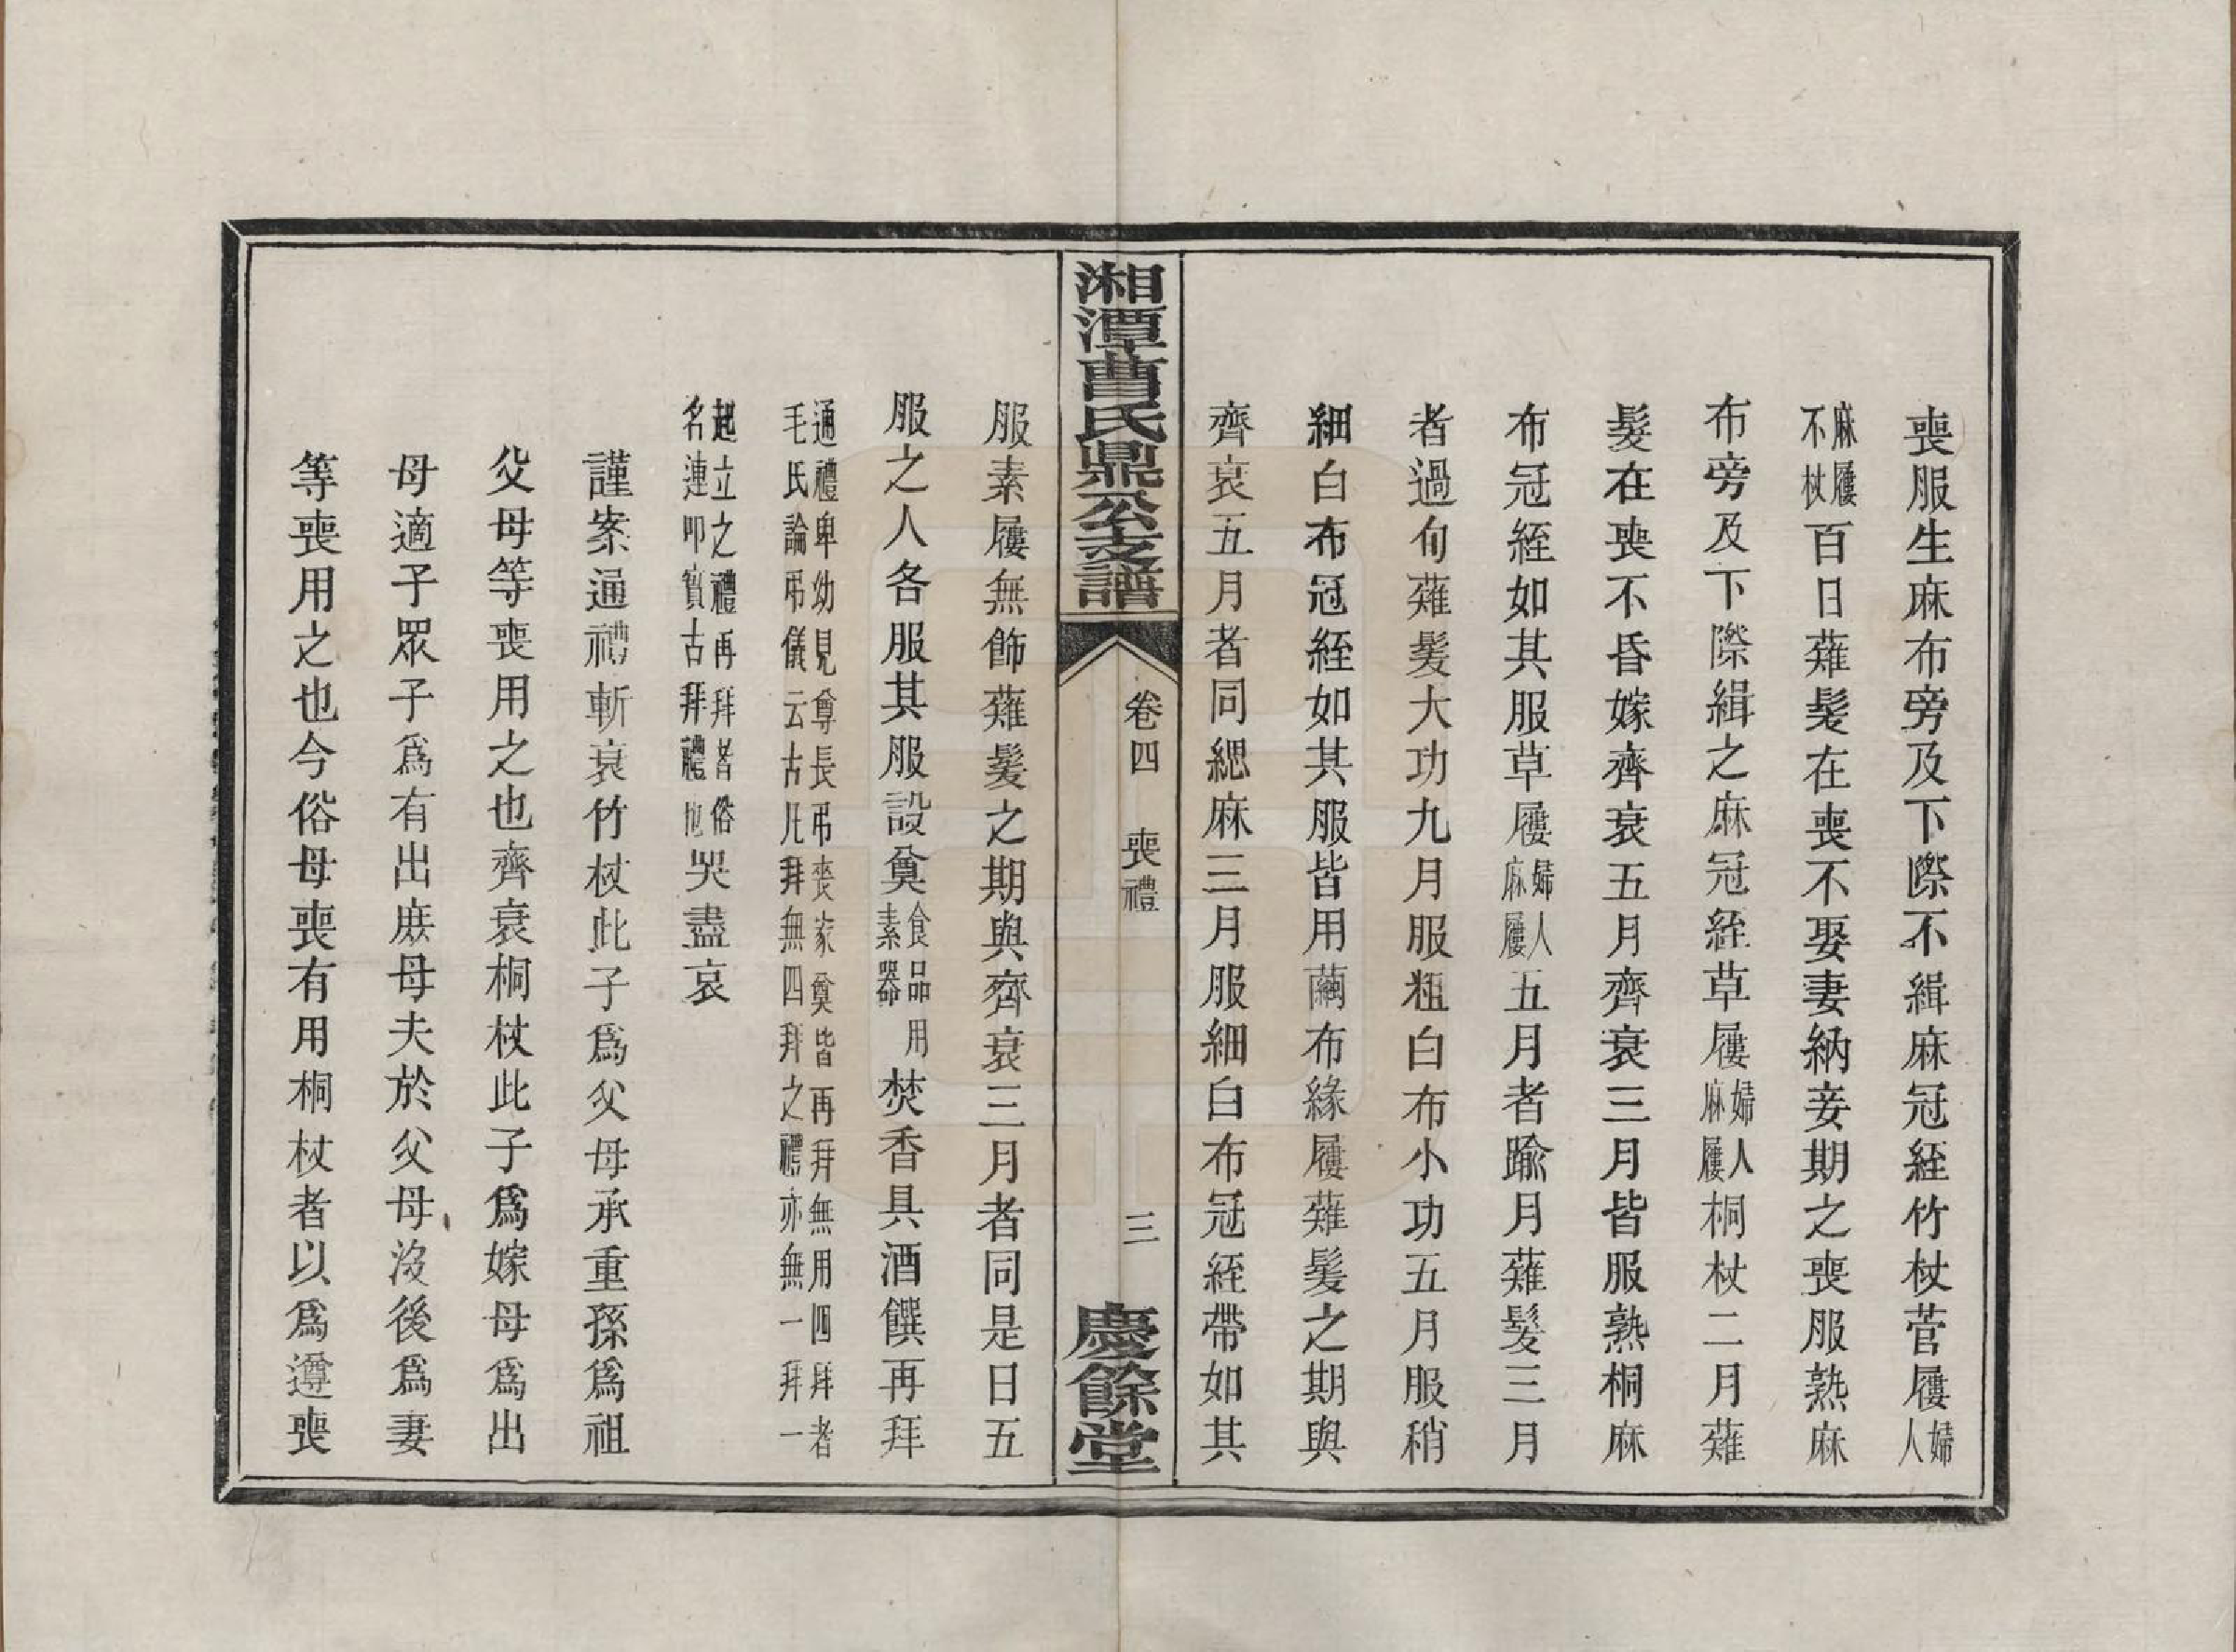 喪服生麻布旁及下際不緝麻冠絰竹杖菅屨婦人
麻屨不杖百日薙髮在喪不娶妻納妾期之喪服熟麻
布旁及下際緝之麻冠絰草屨婦人麻屨桐杖二月薙
髮在喪不昏嫁齊衰五月齊衰三月皆服熟桐麻
布冠絰如其服草屨婦人麻屨五月者踰月薙髮三月
者過旬薙髮大功九月服粗白布小功五月服稍
細白布冠絰如其服皆用繭布緣屨薙髮之期與
齊衰五月者同緦麻三月服細白布冠絰帶如其
湘潭曹氏鼎公支譜
卷四 喪禮
三
慶餘堂
服素屨無飾薙髮之期與齊衰三月者同是日五
服之人各服其服設奠食品用素器焚香具酒饌再拜
通禮卑幼見尊長弔喪家奠皆再拜無用四拜者
毛氏論弔儀云古凡拜無四拜之禮亦無一拜一
起立之禮再拜者俗
名連叩實古拜禮也哭盡哀
謹案通禮斬衰竹杖此子爲父母承重孫爲祖
父母等喪用之也齊衰桐杖此子爲嫁母爲出
母適子眾子爲有出庶母夫於父母沒後爲妻
等喪用之也今俗母喪有用桐杖者以爲遵喪